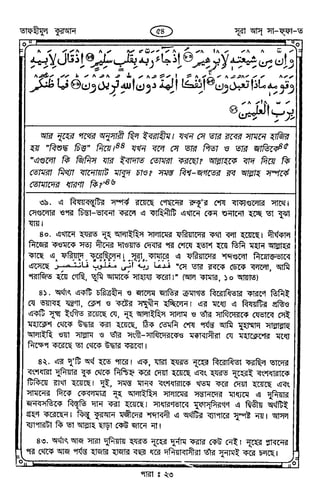 তাফহীমুল কুরআন
৫৪
সূরা আস্ সা-ফ্ফা-ত
وَإِنَّ مِنْ شِيعَتِهِ لَإِبْرٰهِيمَ ۞ إِذْ جَاءَ رَبَّهُ بِقَلْبٍ سَلِيمٍ ۞ إِذْ قَالَ لِأَبِيهِ
وَقَوْمِهِ مَاذَا تَعْبُدُونَ ۞ أَئِفْكًا آلِهَةً دُونَ اللَّهِ تُرِيدُونَ ۞ فَمَا ظَنُّكُمْ
بِرَبِّ الْعٰلَمِينَ ۞
আর নূহের পথের অনুসারী ছিল ইবরাহীম। যখন সে তার রবের সামনে হাজির
হয় “বিশুদ্ধ চিত্ত” নিয়ে।৪৪ যখন বলে সে তার পিতা ও তার জাতিকে৪৫
“এগুলো কি জিনিস যার ইবাদাত তোমরা করছো? আল্লাহকে বাদ দিয়ে কি
তোমরা মিথ্যা বানোয়াট মাবুদ চাও? সমস্ত বিশ্ব-জগতের রব আল্লাহ সম্পর্কে
তোমাদের ধারণা কি?”৪৬
৩৯. এ বিষয়বস্তুটির সম্পর্ক রয়েছে পেছনের রুকূ'র শেষ বাক্যগুলোর সাথে।
সেগুলোর ওপর চিন্তা-ভাবনা করলে এ কাহিনীটি এখানে কেন শুনানো হচ্ছে তা বুঝা
যায়।
৪০. এখানে হযরত নূহ আলাইহিস সালামের ফরিয়াদের কথা বলা হয়েছে। দীর্ঘকাল
নিজের কওমকে সত্য দীনের দাওয়াত দেবার পর শেষে হতাশ হয়ে তিনি মহান আল্লাহর
কাছে এ ফরিয়াদ করেছিলেন। সূরা কামারে এ ফরিয়াদের শব্দগুলো নিম্নোক্তভাবে
এসেছে فدعا ربه أنى مغلوب فانتصر “সে তার রবকে ডেকে বললো, আমি
পরাজিত হয়ে গেছি, তুমি আমাকে সাহায্য করো।” (আল কামার, ১০ আয়াত)
৪১. অর্থাৎ একটি চরিত্রহীন ও জালেম জাতির ক্রমাগত বিরোধিতার কারণে তিনি
যে ভয়াবহ যন্ত্রণা, ক্লেশ ও কষ্টের সম্মুখীন হচ্ছিলেন। এর মধ্যে এ বিষয়টির প্রতিও
একটি সূক্ষ্ম ইংগিত রয়েছে যে, নূহ আলাইহিস সালাম ও তাঁর সাথিদেরকে যেভাবে সেই
মহাক্লেশ থেকে উদ্ধার করা হয়েছে, ঠিক তেমনি শেষ পর্যন্ত আমি মুহাম্মাদ সাল্লাল্লাহু
আলাইহি ওয়া সাল্লাম ও তাঁর সংগী-সাথিদেরকেও মক্কাবাসীরা যে মহাক্লেশের মধ্যে
নিক্ষেপ করেছে তা থেকে উদ্ধার করবো।
৪২. এর দু'টি অর্থ হতে পারে। এক, যারা হযরত নূহের বিরোধিতা করছিল তাদের
বংশধারা দুনিয়ার বুক থেকে নিশ্চিহ্ন করে দেয়া হয়েছে এবং হযরত নূহেরই বংশধারাকে
টিকিয়ে রাখা হয়েছে। দুই, সমস্ত মানব বংশধারাকে খতম করে দেয়া হয়েছে এবং
সামনের দিকে কেবলমাত্র নূহ আলাইহিস সালামের সন্তানদের মাধ্যমে এ দুনিয়ার
জনবসতিকে বিস্তৃতি দান করা হয়েছে। সাধারণভাবে মুফাস্‌সিরগণ এ দ্বিতীয় অর্থটিই
গ্রহণ করেছেন। কিন্তু কুরআন মজীদের শব্দাবলী এ অর্থটির ব্যাপারে সুস্পষ্ট নয়। আসল
ব্যাপারটা কি তা আল্লাহ ছাড়া কেউ জানে না।
৪৩. অর্থাৎ আজ সারা দুনিয়ায় হযরত নূহের দুর্নাম করার কেউ নেই। নূহের প্লাবনের
পর থেকে আজ পর্যন্ত হাজার হাজার বছর ধরে দুনিয়াবাসীরা তাঁর সুনামই করে চলছে।
পারা : ২৩